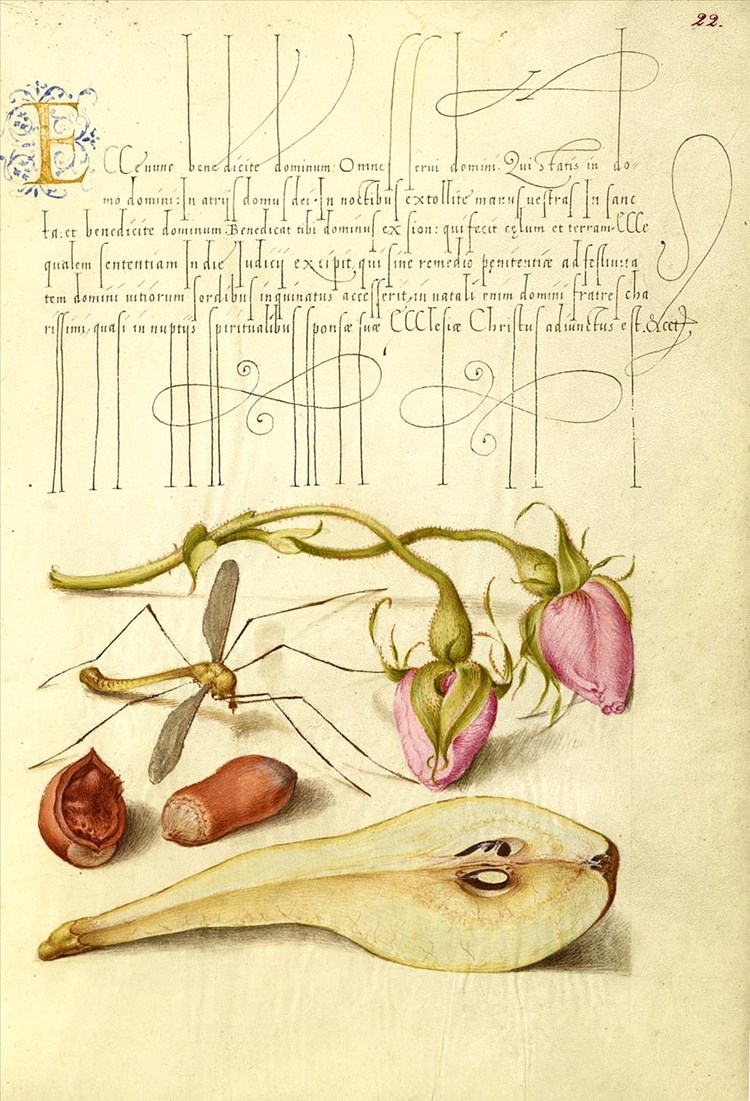 22.
ECCe nunc benedicite dominum: Omnes servi domini. Qui statis in do-
mo domini: In atrijs domus dei. In noctibus extollite manus vestras In sanc
ta: et benedicite dominum. Benedicat tibi dominus ex sion: qui fecit cęlum et terram. CCCe
qualem sententiam In die Iudicij excipit, qui sine remedio penitentiæ ad festivita
tem domini vitiorum sordibus inquinatus accesserit, in natali enim domini fratres cha
rissimi, quasi in nuptijs spiritualibus sponsæ suæ ECCClesiæ Christus adiunctus est. &cet.